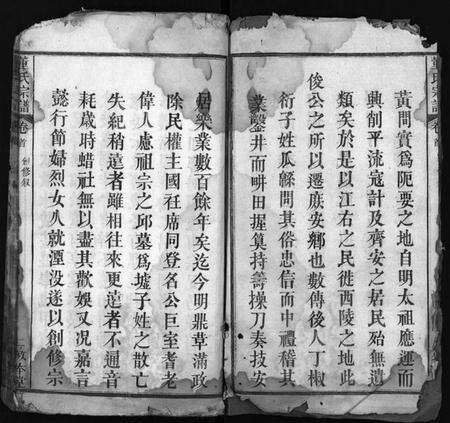 黃間實爲阨要之地自明太祖應運而
興削平流寇計及齊安之居民殆無遺
類矣於是以江右之民徙西陵之地此
俊公之所以遷麻安鄉也數傳後人丁椒
衍子姓瓜緜間其俗忠信而中禮稽其
業鑿井而畊田握筭持籌操刀奏技安
居樂業數百餘年矣迄今明鼎革滿政
除民權主國社席同登名公巨室耆老
偉人慮祖宗之邱墓爲墟子姓之散亡
失紀稍遠者雖相往來更遠者不通音
耗歲時蜡社無以盡其歡娛又况嘉言
懿行節婦烈女久就湮没遂以創修宗
董氏宗譜 卷首 創修叙